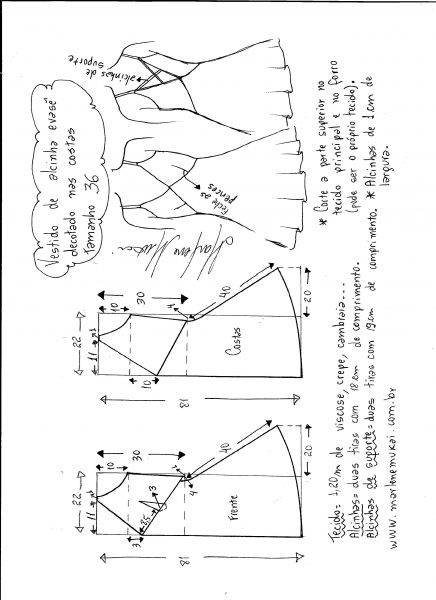 Vestido de
alcinha evasê
decotado nas costas
Tamanho 36
alcinhas de
suporte
feche as
pences
* Corte a parte superior no
tecido principal e no forro
(pode ser o próprio tecido).
22
11
10
30
4
40
20
10
81
Costas
22
11
10
30
4
40
20
3
2,5
3
81
Frente
Tecido = 1,20m de viscose, crepe, cambraia...
Alcinhas = duas tiras com 18cm de comprimento.
Alcinhas de suporte = duas tiras com 19cm de comprimento. * Alcinhas de 1cm de
largura.
www.marlenemukai.com.br